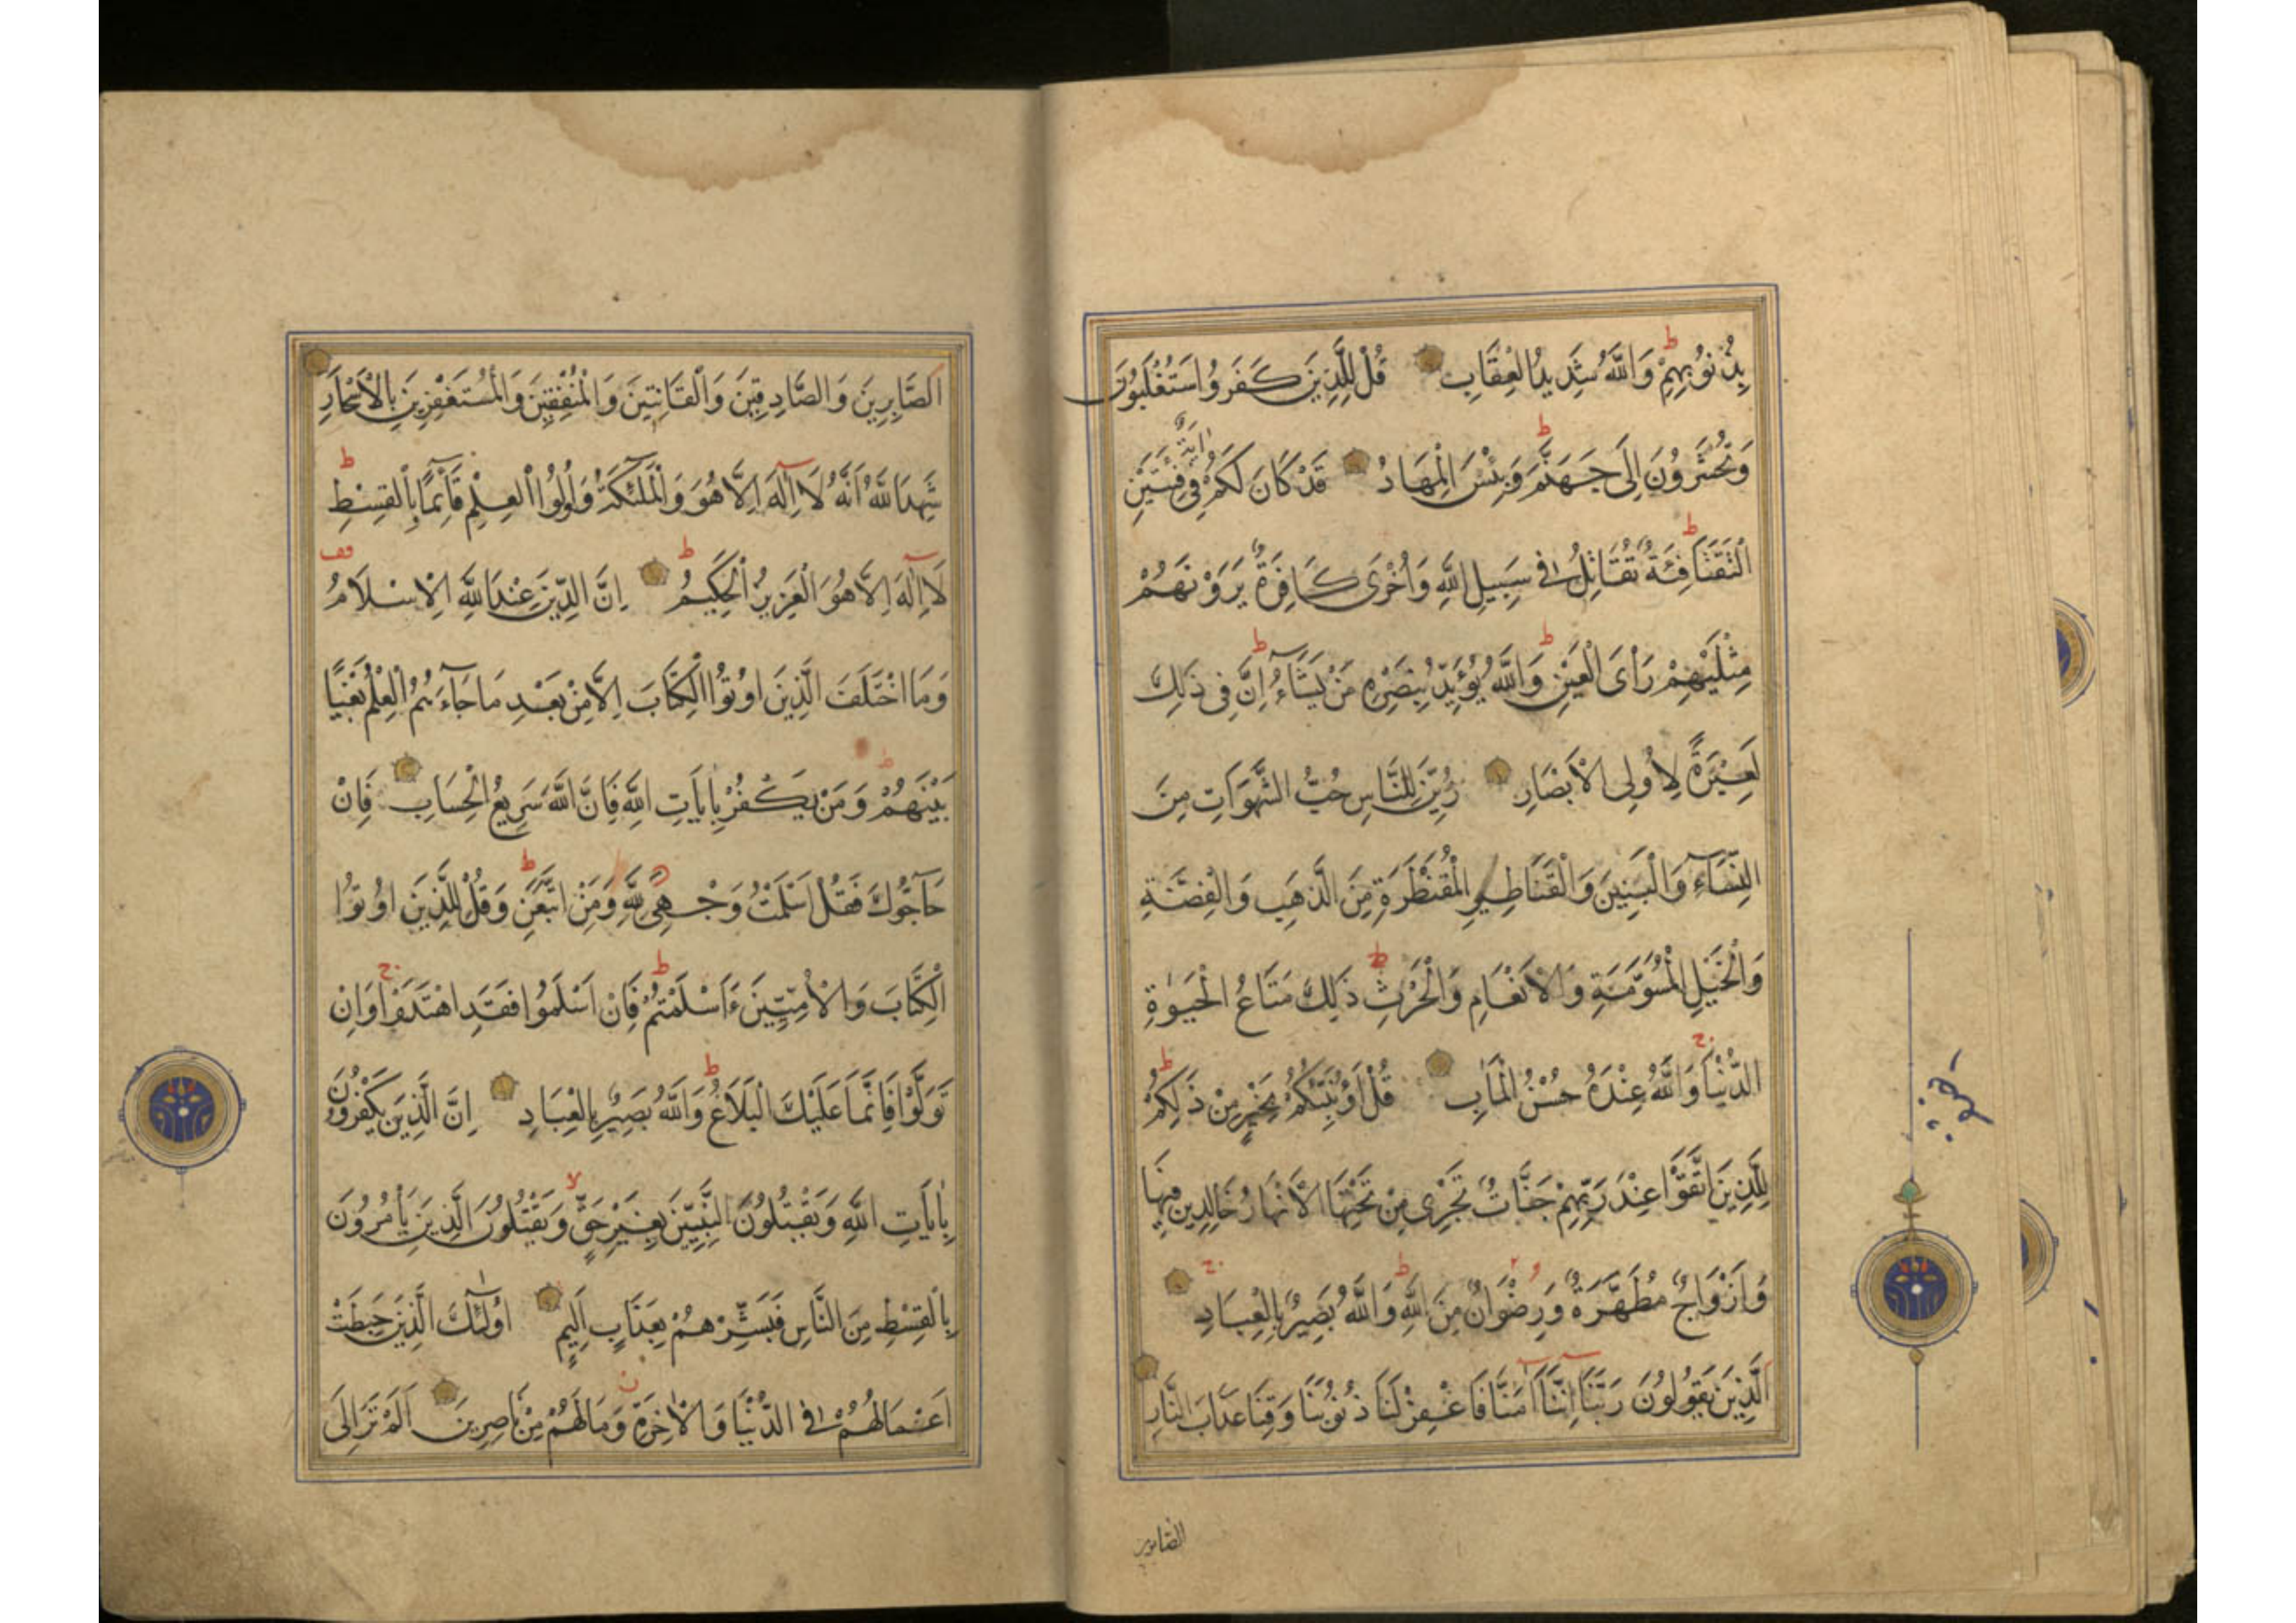 بِذُنُوبِهِمْ وَاللَّهُ شَدِيدُ الْعِقَابِ قُلْ لِلَّذِينَ كَفَرُوا سَتُغْلَبُونَ
وَتُحْشَرُونَ إِلَى جَهَنَّمَ وَبِئْسَ الْمِهَادُ قَدْ كَانَ لَكُمْ اٰيَةٌ فِي فِئَتَيْنِ
الْتَقَتَا فِئَةٌ تُقَاتِلُ فِي سَبِيلِ اللَّهِ وَأُخْرَى كَافِرَةٌ يَرَوْنَهُمْ
مِثْلَيْهِمْ رَأْيَ الْعَيْنِ وَاللَّهُ يُؤَيِّدُ بِنَصْرِهِ مَنْ يَشَآءُ إِنَّ فِي ذَلِكَ
لَعِبْرَةً لِأُولِى الْأَبْصَارِ زُيِّنَ لِلنَّاسِ حُبُّ الشَّهَوَاتِ مِنَ
النِّسَآءِ وَالْبَنِينَ وَالْقَنَاطِيرِ الْمُقَنْطَرَةِ مِنَ الذَّهَبِ وَالْفِضَّةِ
وَالْخَيْلِ الْمُسَوَّمَةِ وَالْأَنْعَامِ وَالْحَرْثِ ذَلِكَ مَتَاعُ الْحَيٰوةِ
الدُّنْيَا وَاللَّهُ عِنْدَهُ حُسْنُ الْمَاٰبِ قُلْ أَؤُنَبِّئُكُمْ بِخَيْرٍ مِنْ ذَلِكُمْ
لِلَّذِينَ اتَّقَوْا عِنْدَ رَبِّهِمْ جَنَّاتٌ تَجْرِى مِنْ تَحْتِهَا الْأَنْهَارُ خَالِدِينَ فِيهَا
وَأَزْوَاجٌ مُطَهَّرَةٌ وَرِضْوَانٌ مِنَ اللَّهِ وَاللَّهُ بَصِيرٌ بِالْعِبَادِ
الَّذِينَ يَقُولُونَ رَبَّنَا إِنَّنَا اٰمَنَّا فَاغْفِرْ لَنَا ذُنُوبَنَا وَقِنَا عَذَابَ النَّارِ
الصابرين
اَلصَّابِرِينَ وَالصَّادِقِينَ وَالْقَانِتِينَ وَالْمُنْفِقِينَ وَالْمُسْتَغْفِرِينَ بِالْأَسْحَارِ
شَهِدَ اللَّهُ أَنَّهُ لَا إِلٰهَ إِلَّا هُوَ وَالْمَلٰئِكَةُ وَأُولُوا الْعِلْمِ قَآئِمًا بِالْقِسْطِ
لَا إِلٰهَ إِلَّا هُوَ الْعَزِيزُ الْحَكِيمُ إِنَّ الدِّينَ عِنْدَ اللَّهِ الْإِسْلَامُ
وَمَا اخْتَلَفَ الَّذِينَ اُوتُوا الْكِتَابَ إِلَّا مِنْ بَعْدِ مَا جَآءَهُمُ الْعِلْمُ بَغْيًا
بَيْنَهُمْ وَمَنْ يَكْفُرْ بِاٰيَاتِ اللَّهِ فَإِنَّ اللَّهَ سَرِيعُ الْحِسَابِ فَإِنْ
حَآجُّوكَ فَقُلْ أَسْلَمْتُ وَجْهِىَ لِلَّهِ وَمَنِ اتَّبَعَنِ وَقُلْ لِلَّذِينَ اُوتُوا
الْكِتَابَ وَالْأُمِّيِّينَ ءَأَسْلَمْتُمْ فَإِنْ أَسْلَمُوا فَقَدِ اهْتَدَوْا وَإِنْ
تَوَلَّوْا فَإِنَّمَا عَلَيْكَ الْبَلَاغُ وَاللَّهُ بَصِيرٌ بِالْعِبَادِ إِنَّ الَّذِينَ يَكْفُرُونَ
بِاٰيَاتِ اللَّهِ وَيَقْتُلُونَ النَّبِيِّينَ بِغَيْرِ حَقٍّ وَيَقْتُلُونَ الَّذِينَ يَأْمُرُونَ
بِالْقِسْطِ مِنَ النَّاسِ فَبَشِّرْهُمْ بِعَذَابٍ أَلِيمٍ اُولٰئِكَ الَّذِينَ حَبِطَتْ
أَعْمَالُهُمْ فِي الدُّنْيَا وَالْاٰخِرَةِ وَمَا لَهُمْ مِنْ نَاصِرِينَ أَلَمْ تَرَ إِلَى